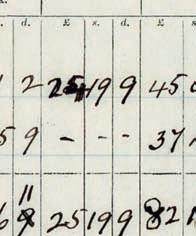 d. £ s. d. £ s
2 254 19 9 45
5 9 - - - 37
11
6 9 25 19 9 82